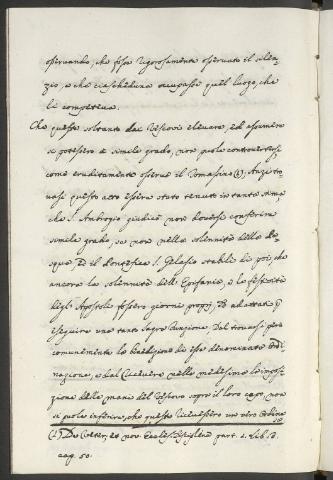 osservando, che fosse rigorosamente osservato il silen-
zio, e che ciascheduna occupasse quel luogo, che
le competeva.
Che queste soltanto dai Vescovi elevare, ed assumere
si potessero a simile grado, non può controvertersi,
come eruditamente osserva il Tomasini (1). Anzi tro-
vasi questo atto essere stato tenuto in tanta stima,
che S. Ambrogio giudicò non doversi conferire
simile grado, se non nella solennità della Pa-
squa. Ed il Pontefice S. Gelasio stabilì di poi, che
ancora la solennità dell' Epifania, e la festività
degl' Apostoli fossero giorni proprj, ed adattati p
eseguire una tanto sagra funzione. Dal trovarsi però
comunemente la Benedizione di esse denominata Ordi-
nazione, e dal ricevere nella medesima l'imposi-
zione delle mani del Vescovo sopra il loro capo, non
si può inferire, che queste ricevessero un vero Ordine
(1) De Veter. et nov. Eccles. Disciplina part. 1. lib. 3.
cap. 50.